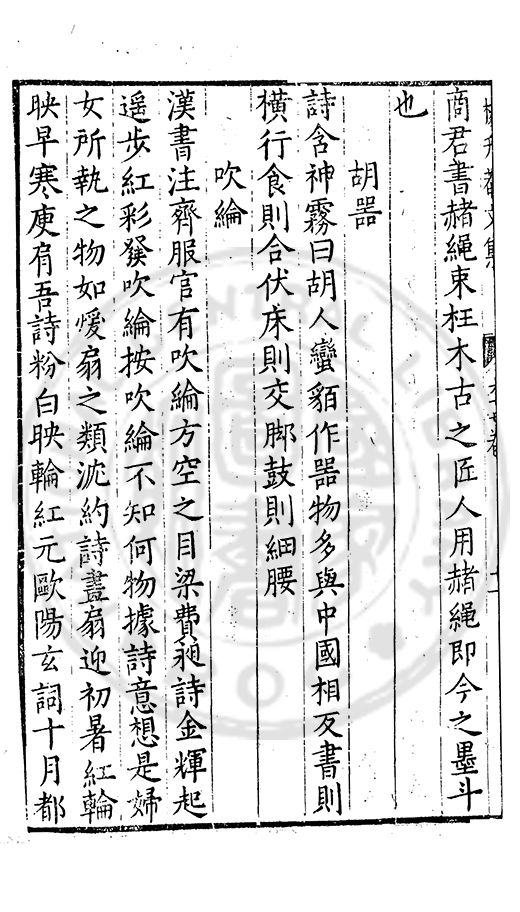 商君書赭繩束枉木古之匠人用赭繩即今之墨斗
也
胡器
詩含神霧曰胡人蠻貊作器物多與中國相反書則
橫行食則合伏床則交脚鼓則細腰
吹綸
漢書注齊服官有吹綸方空之目梁費昶詩金輝起
遥步紅彩發吹綸按吹綸不知何物據詩意想是婦
女所執之物如煖扇之類沈約詩畫扇迎初暑紅輪
映早寒庾肩吾詩粉白映輪紅元歐陽玄詞十月都